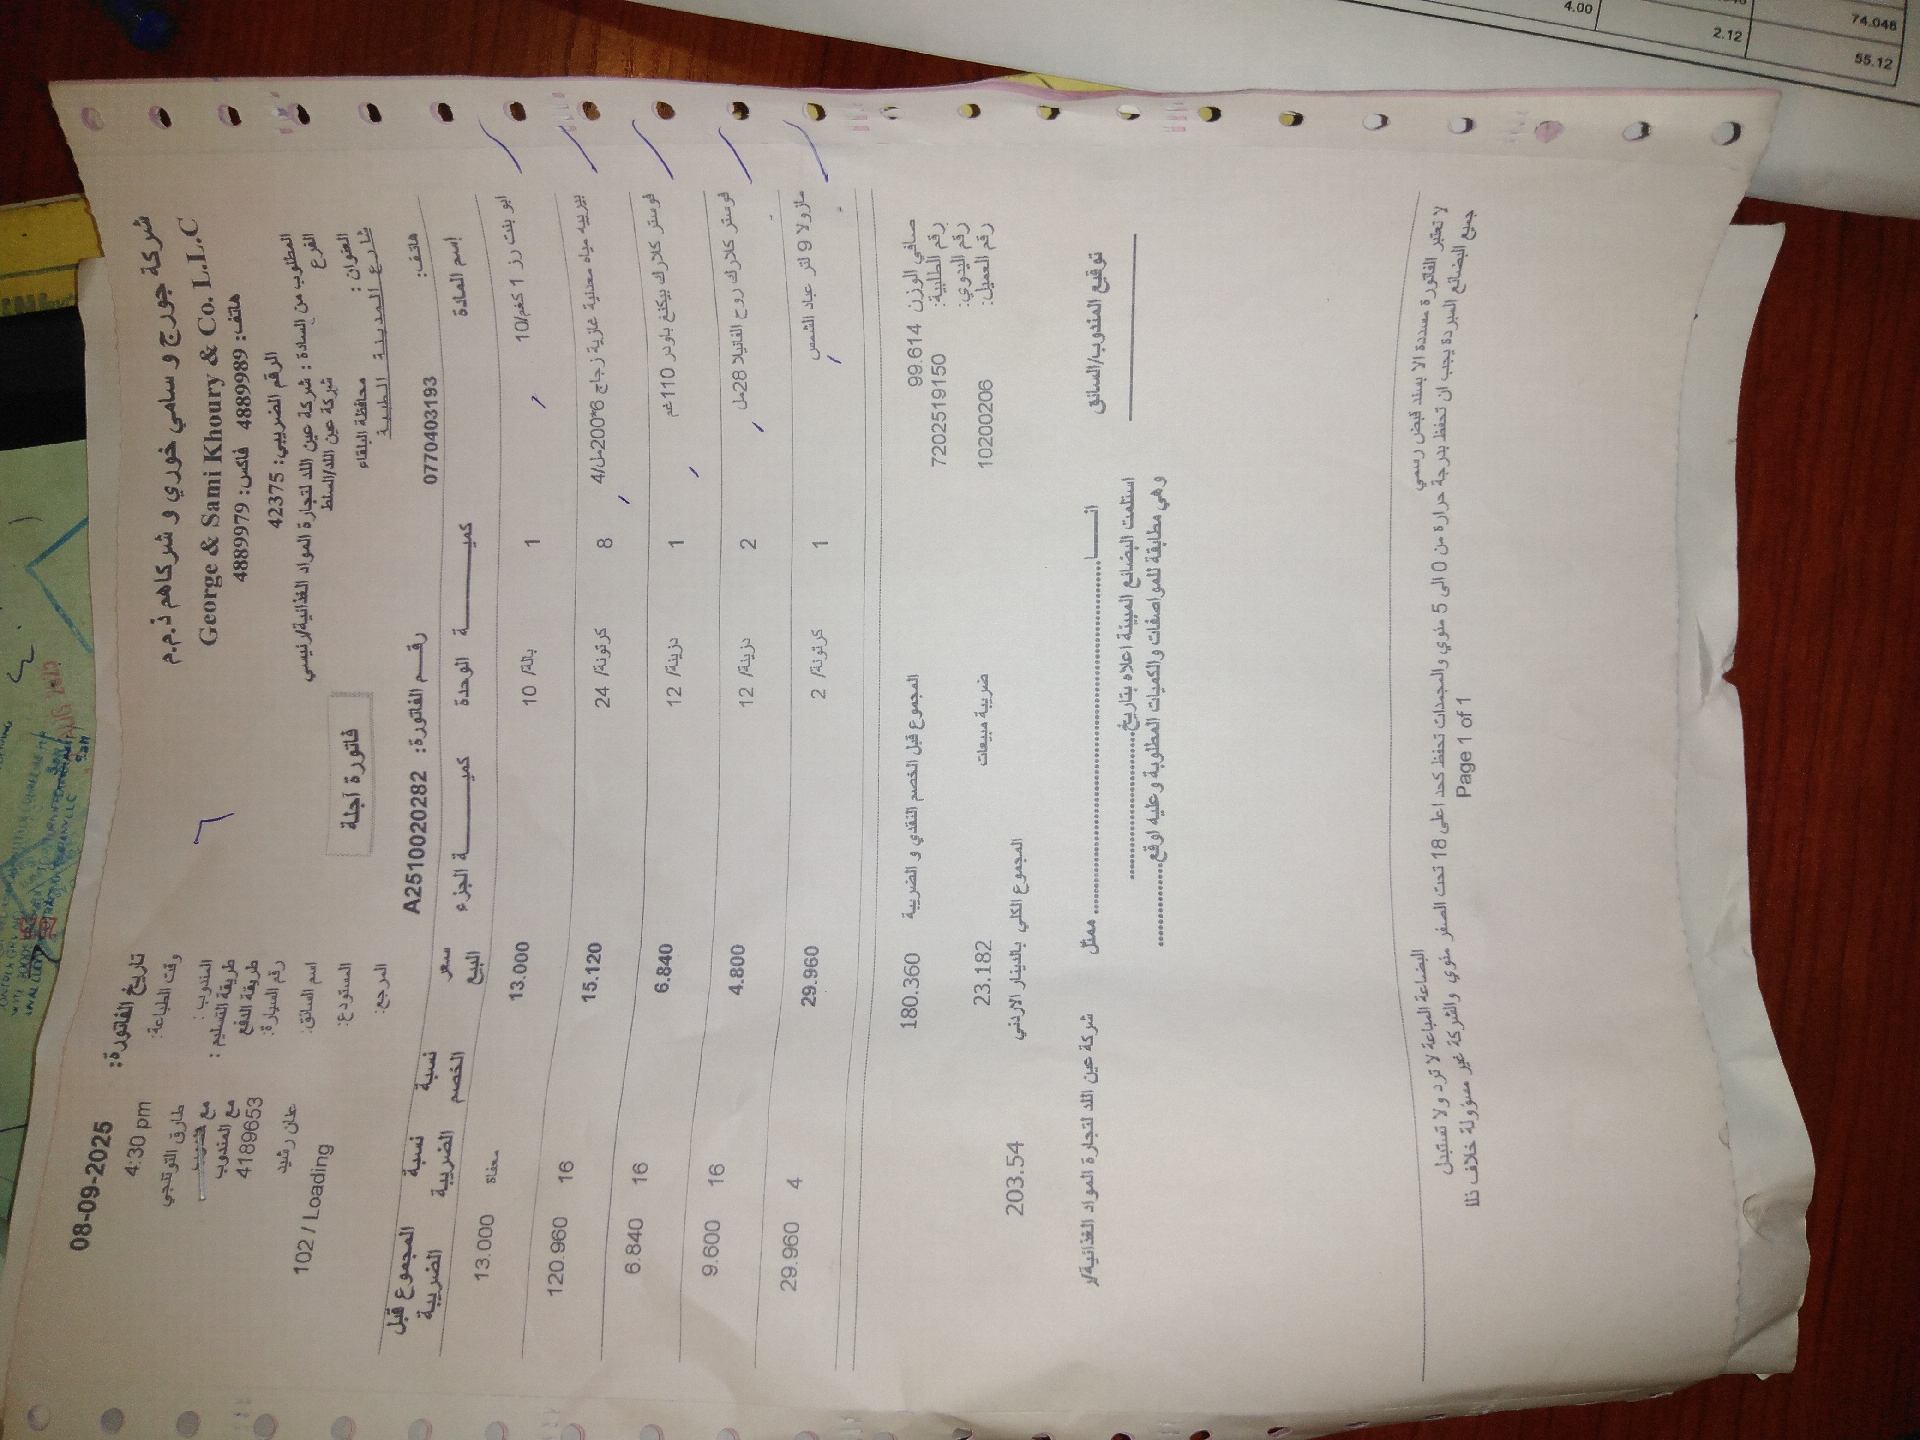 شركة جورج و سامي خوري و شركاهم ذ.م.م
George & Sami Khoury & Co. L.L.C
هاتف: 4889989 فاكس: 4889979
الرقم الضريبي: 42375
المطلوب من السادة : شركة عين اللد لتجارة المواد الغذائية/رئيسي
الفرع شركة عين اللد/السلط
العنوان : محافظة البلقاء
شارع المدينة الطبية
هاتف: 0770403193
تاريخ الفاتورة: 08-09-2025
وقت الطباعة: 4:30 pm
المندوب : طارق التوتلجي
طريقة التسليم : مع
طريقة الدفع مع المندوب
رقم السيارة: 4189653
اسم السائق: رشيد
المستودع: 102 / Loading
المرجع:
فاتورة آجلة
رقم الفاتورة: A2510020282
إسم المادة كميـــة الوحدة كميـــة الجزء سعر البيع نسبة الخصم نسبة الضريبة المجموع قبل الضريبة
ابو بنت رز 1 كغم/10 1 بالة/ 10 13.000 معفاة 13.000
بيرييه مياه معدنية غازية زجاج 6*200مل/4 8 كرتونة/ 24 15.120 16 120.960
فوستر كلارك بيكنغ باودر 110غم 1 دزينة/ 12 6.840 16 6.840
فوستر كلارك روح الفانيلا 28مل 2 دزينة/ 12 4.800 16 9.600
مازولا 9 لتر عباد الشمس 1 كرتونة/ 2 29.960 4 29.960
صافي الوزن 99.614 المجموع قبل الخصم النقدي و الضريبة 180.360
رقم الطلبية: 7202519150
رقم اليدوي:
رقم العميل: 10200206 ضريبة مبيعات 23.182
المجموع الكلي بالدينار الاردني 203.54
توقيع المندوب/السائق
انـــا ........ ممثل شركة عين اللد لتجارة المواد الغذائية/ر
استلمت البضائع المبينة اعلاه بتاريخ........
وهي مطابقة للمواصفات والكميات المطلوبة وعليه اوقع........
لا تعتبر الفاتورة مسددة الا بسند قبض رسمي البضاعة المباعة لا ترد ولا تستبدل
جميع البضائع المبردة يجب ان تحفظ بدرجة حرارة من 0 الى 5 مئوي والمجمدات تحفظ كحد اعلى 18 تحت الصفر مئوي والشركة غير مسؤولة خلاف ذلك
Page 1 of 1
4.00
74.048
2.12
55.12